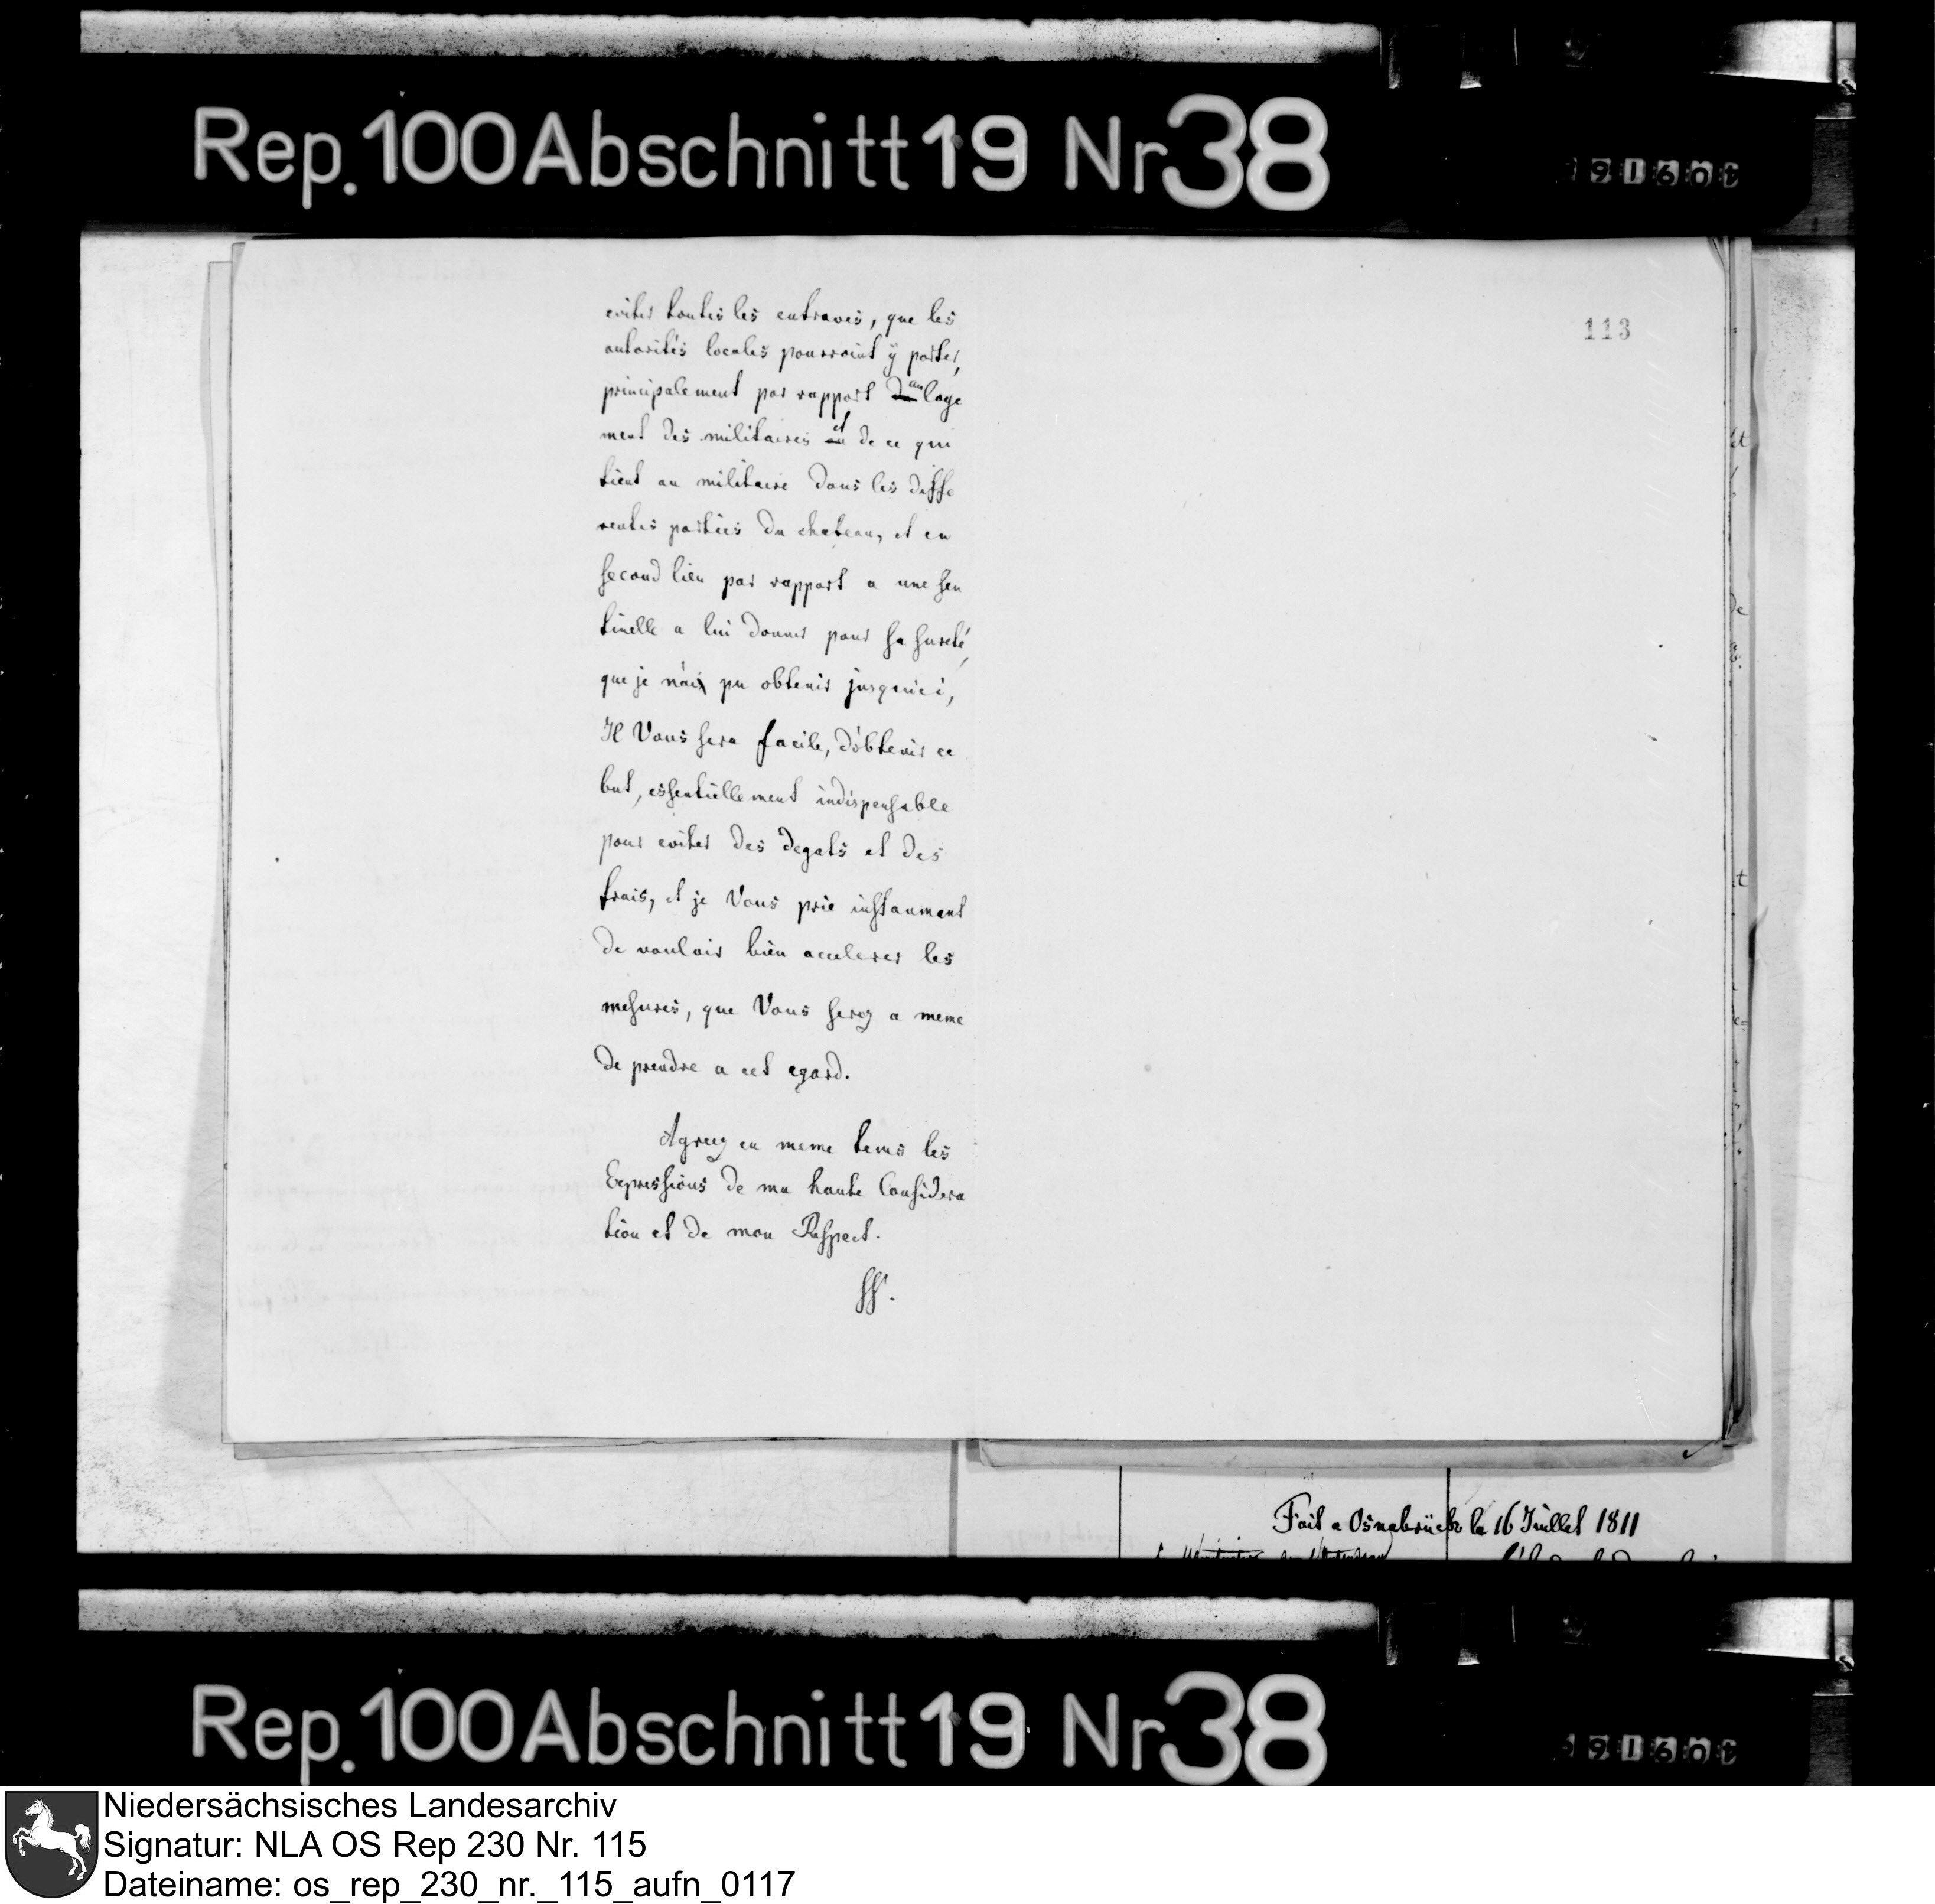 Rep.100 Abschnitt 19 Nr 38
91601
113
eviter toutes les entraves, que les
autorités locales pourroint ÿ porter,
principalement par rapport du au loge
ment des militaires et de ce qui
tient au militaire dans les diffe
rentes parties du chateau, et en
second lieu par rapport a une sen
tinelle a lui donner pour sa sureté,
que je n'ais pu obtenir jusqu'ici,
Il Vous sera facile, d'obtenir ce
but, essentiellement indispensable
pour eviter des degats et des
frais, et je Vous prie instanment
de vouloir bien accelerer les
mesures, que Vous serez a meme
de prendre a cet egard.
Agreez en meme tems les
Expressions de ma haute Considera
tion et de mon Respect.
Fait a Osnabrück le 16 Juillet 1811
Rep.100 Abschnitt 19 Nr 38
91601
Niedersächsisches Landesarchiv
Signatur: NLA OS Rep 230 Nr. 115
Dateiname: os_rep_230_nr._115_aufn_0117